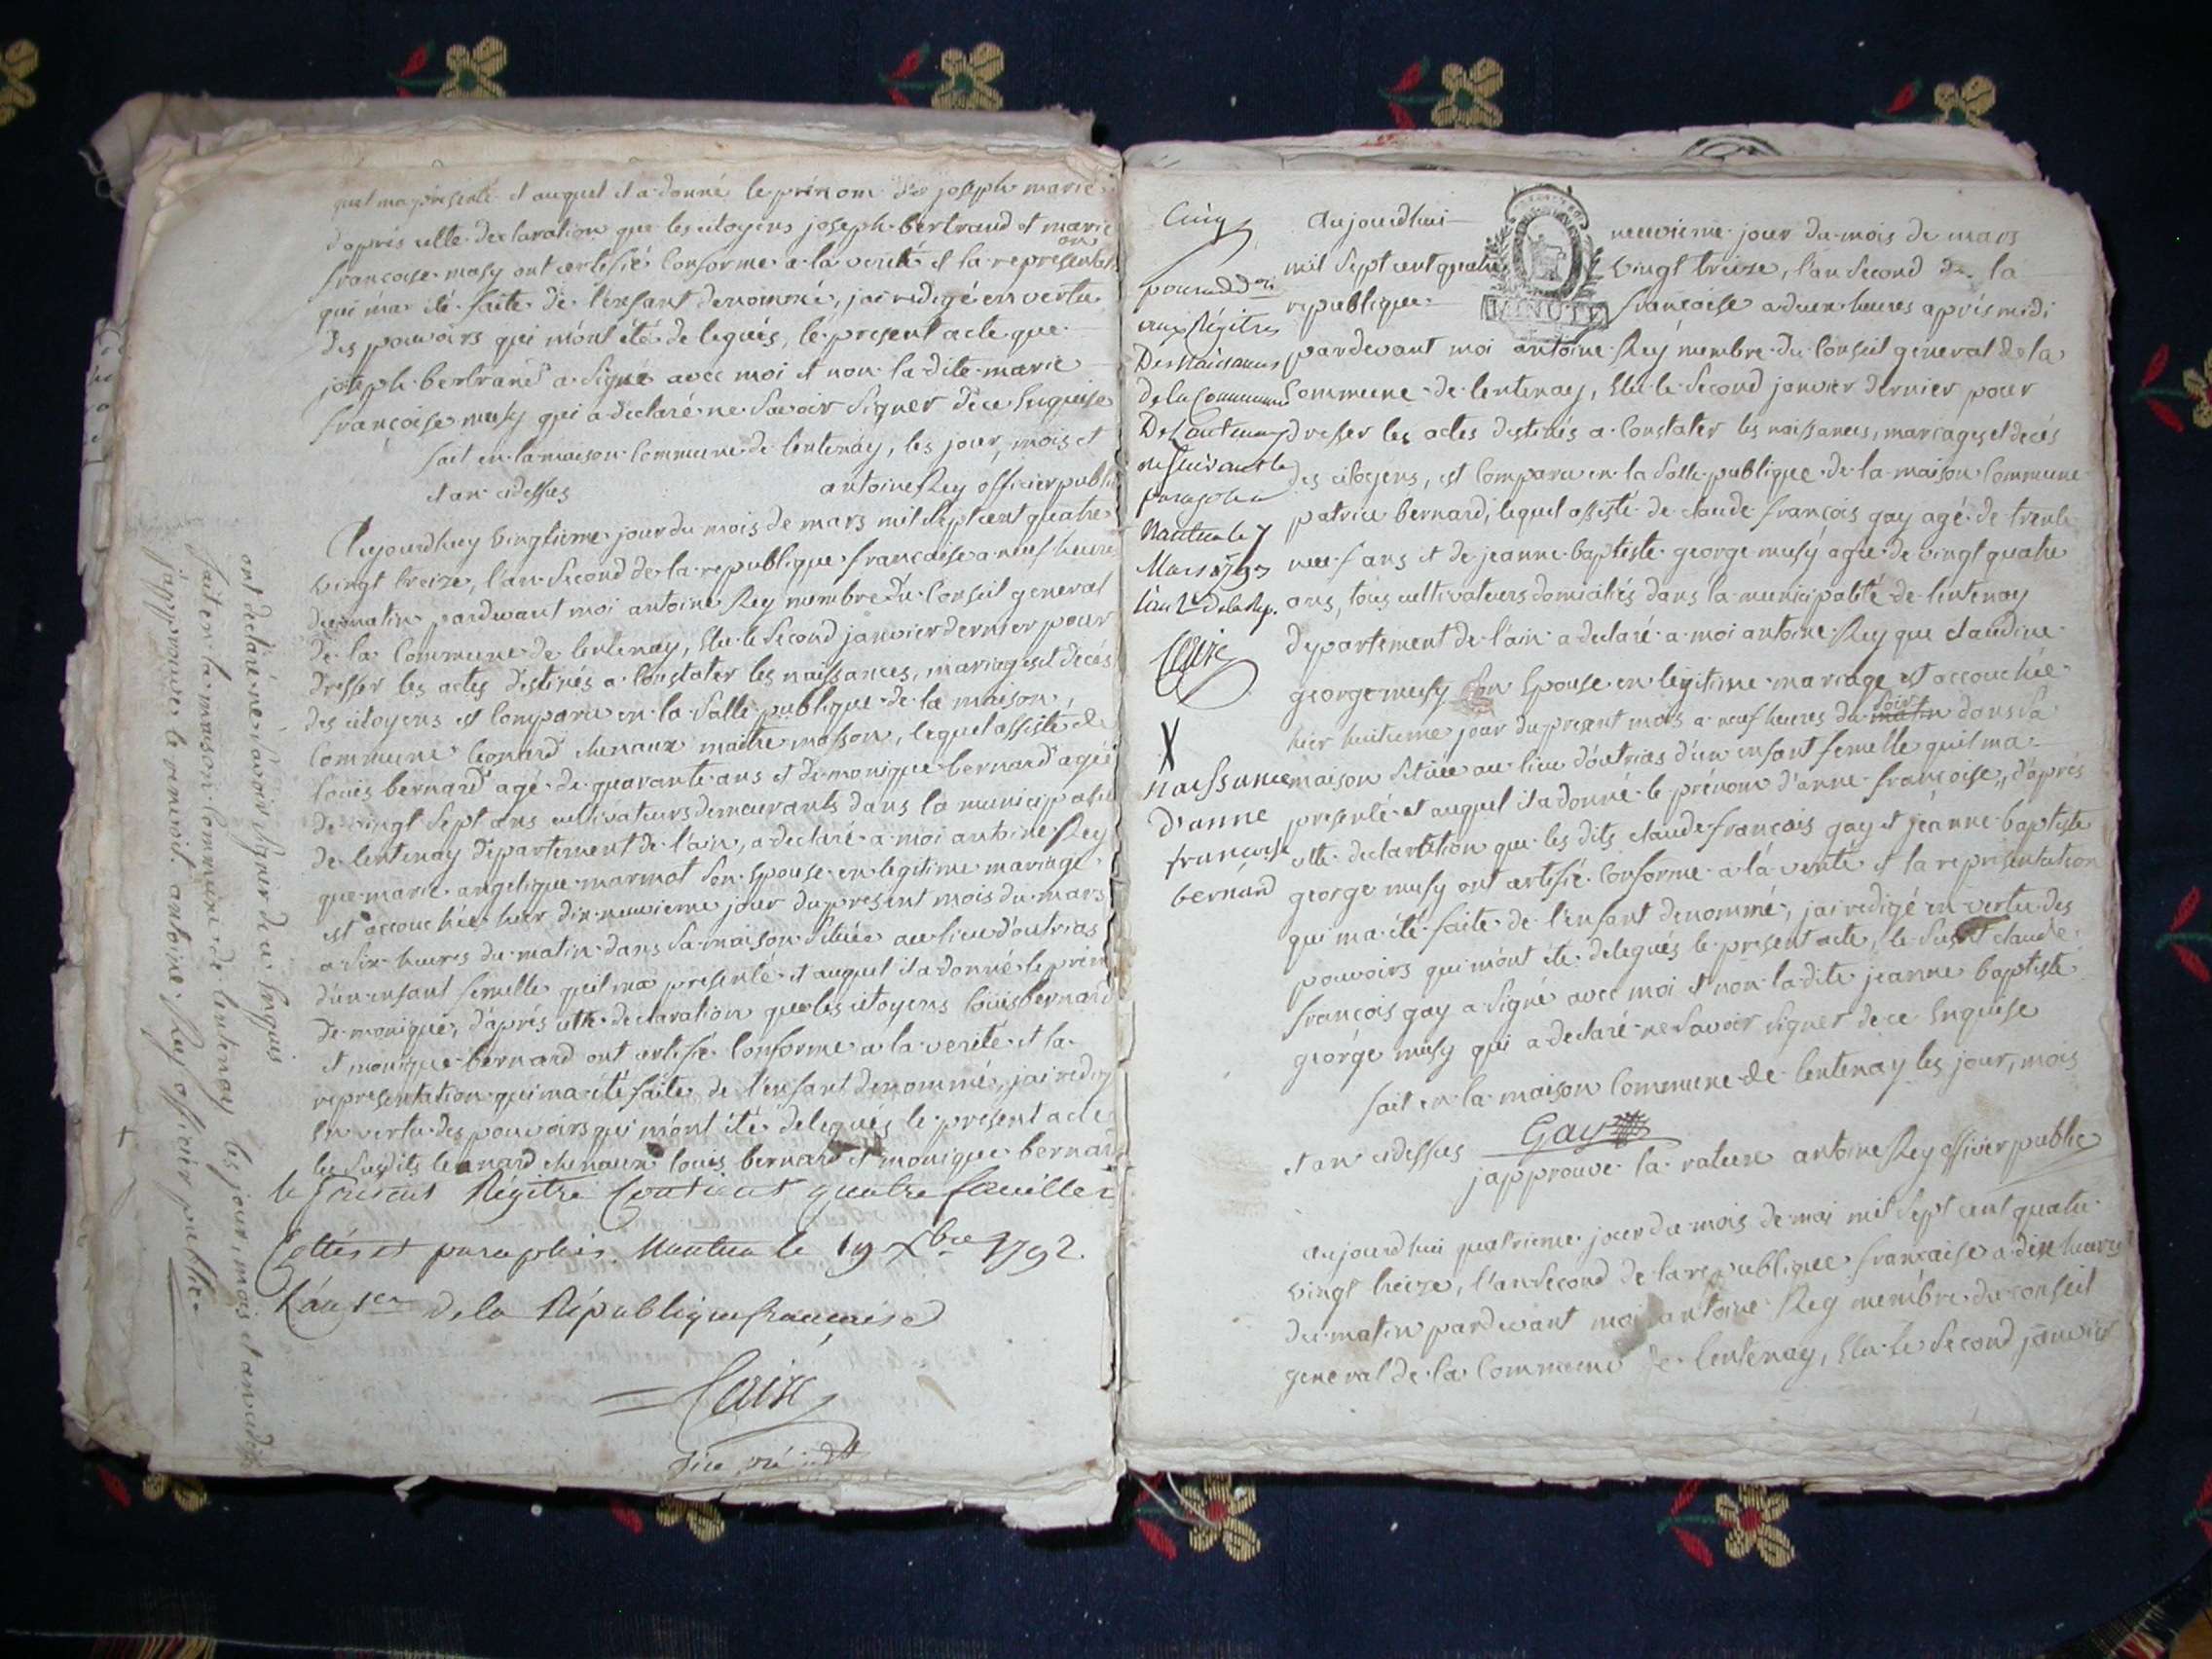 qu'il m'a présenté et auquel il a donné le prénom de joseph marie
d'aprés cette declaration que les citoyens joseph bertrand et marie
françoise musy ont certifié conforme a la verité et la representation
qui m'a été faite de l'enfant denommé, j'ai redigé en vertu
des pouvoirs qui m'ont été delegués, le present acte que
joseph bertrand a signé avec moi et non la dite marie
françoise musy qui a declaré ne savoir signer de ce enquise
fait en la maison commune de lentenay, les jour, mois et
et an cidessus antoine Rey officier public
Aujourdhuy vingtieme jour du mois de mars mil sept cent quatre
vingt treize, l'an second de la republique françaïse a neuf heures
du matin pardevant moi antoine Rey membre du conseil general
de la commune de lentenay, élu le second janvier dernier pour
dresser les actes destinés a constater les naissances, mariages et décés
des citoyens est comparu en la salle publique de la maison
commune leonard chenaux maitre masson, lequel assisté de
louis bernard agé de quarante ans et de monique bernard agée
de vingt sept ans cultivateurs demeurants dans la municipalité
de lentenay departement de l'ain, a declaré a moi antoine Rey
que marie angelique marmot son epouse en legitime mariage
est accouchée hier dix neuvieme jour du present mois du mars
a six heures du matin dans sa maison située au lieu d'outrias
d'un enfant femelle qu'il m'a presenté et auquel il a donné le prénom
de monique, d'aprés cette declaration que les citoyens louis bernard
et monique bernard ont certifié conforme a la verité et la
representation qui m'a été faite de l'enfant denommé, j'ai redigé
en vertu des pouvoirs qui m'ont été delegués le present acte
les susdits leonard chenaux louis bernard et monique bernard
ont declaré ne savoir signer de ce enquis
fait en la maison commune de lentenay les jour, mois et an cidessus
j'approuve le renvoit antoine Rey officier public
le present Régitre Contient quatre feuilles
Cottés et paraphés Nantua le 19 Xbre 1792
L'an 1er de la République française
Cinq
pour add.on
aux Régitres
Des Naissances
de la Commune
De Lantenay
paraphé
Nantua le 7
Mars 1793
l'an 2e de la Rep.
X
naissance
d'anne
françoise
bernard
Aujourdhui neuvieme jour du mois de mars
mil sept cent quatre vingt treize, l'an second de la
republique françoise a deux heures aprés midi
MINUTE
pardevant moi antoine Rey membre du conseil general de la
commune de lentenay, élu le second janvier dernier pour
dresser les actes destinés a constater les naissances, mariages et decés
des citoyens, est comparu en la salle publique de la maison commune
patrice bernard, lequel assisté de claude françois gay agé de trente
neuf ans et de jeanne baptiste george musy agée de vingt quatre
ans, tous cultivateurs domiciliés dans la municipalité de lentenay
departement de l'ain a declaré a moi antoine Rey que claudine
george musy son epouse en legitime mariage est accouchée
hier huitieme jour du present mois a neuf heures du matin soir dans sa
maison située au lieu d'outrias d'un enfant femelle qu'il m'a
presenté et auquel il a donné le prénom d'anne françoise, d'aprés
cette declaration que les dits claude françois gay et jeanne baptiste
george musy ont certifié conforme a la verité et la representation
qui m'a été faite de l'enfant denommé, j'ai redigé en vertu des
pouvoirs qui m'ont été delegués le present acte, le susdit claude
françois gay a signé avec moi et non la dite jeanne baptiste
george musy qui a declaré ne savoir signer de ce enquise
fait en la maison commune de lentenay les jour, mois
et an cidessus Gay
j'approuve la rature antoine Rey officier public
aujourdhui quatrieme jour du mois de mai mil sept cent quatre
vingt treize, l'an second de la republique française a dix heures
du matin pardevant moi antoine Rey membre du conseil
general de la commune de lentenay, élu le second janvier